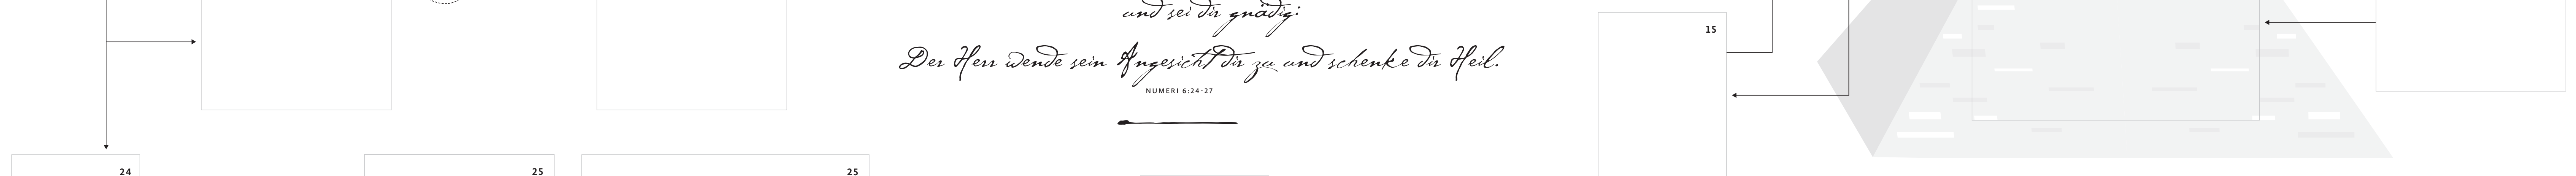 und sei dir gnädig:
15
Der Herr wende sein Angesicht dir zu und schenke dir Heil.
NUMERI 6:24-27
24
25
25